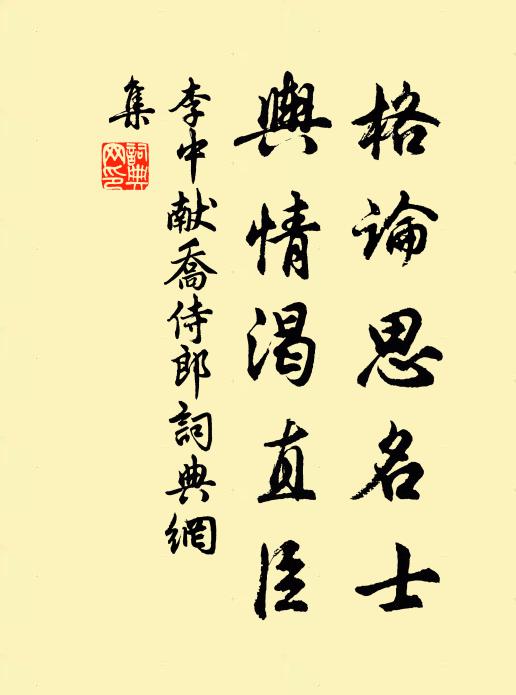 格論思名士
輿情渴直臣
李中献喬侍郎詞典網
集
詞典網